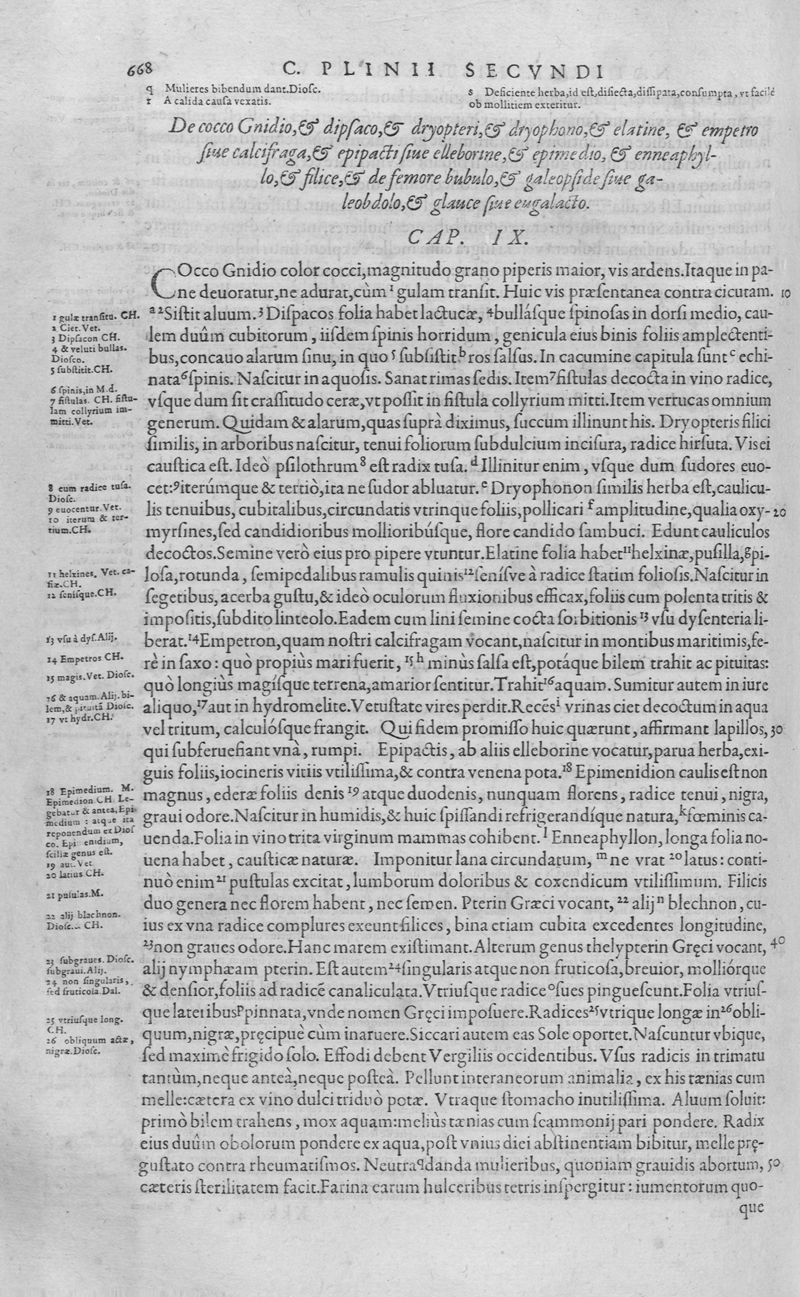 668 C. PLINII SECVNDI
q Mulieres bibendum dant. Diosc.
r A calida causa vexatis.
s Deficiente herba, id est, disiecta, dissipata, consumpta, vt facilè
ob mollitiem exteritur.
De cocco Gnidio, & dipsaco, & dryopteri, & dryophono, & elatine, & empetro
siue calcifraga, & epipacti siue elleborine, & epimedio, & enneaphyl-
lo, & filice, & de femore bubulo, & galeopside siue ga-
leobdolo, & glauce siue eugalacto.
CAP. IX.
COcco Gnidio color cocci, magnitudo grano piperis maior, vis ardens. Itaque in pa-
ne deuoratur, ne adurat, cùm ¹ gulam transit. Huic vis præsentanea contra cicutam. 10
ᵃ ²Sistit aluum. ³ Dispacos folia habet lactucæ, ⁴bullásque spinosas in dorsi medio, cau-
lem duûm cubitorum, iisdem spinis horridum, genicula eius binis foliis amplectenti-
bus, concauo alarum sinu, in quo ⁵ subsistit ᵇ ros salsus. In cacumine capitula sunt ᶜ echi-
nata ⁶ spinis. Nascitur in aquosis. Sanat rimas sedis. Item ⁷ fistulas decocta in vino radice,
vsque dum sit crassitudo ceræ, vt possit in fistula collyrium mitti. Item verrucas omnium
generum. Quidam & alarum, quas suprà diximus, succum illinunt his. Dryopteris filici
similis, in arboribus nascitur, tenui foliorum subdulcium incisura, radice hirsuta. Vis ei
caustica est. Ideò psilothrum ⁸ est radix tusa. ᵈ Illinitur enim, vsque dum sudores euo-
cet: ⁹iterúmque & tertiò, ita ne sudor abluatur. ᵉ Dryophonon similis herba est, caulicu-
lis tenuibus, cubitalibus, circundatis vtrinque foliis, pollicari ᶠ amplitudine, qualia oxy- 20
myrsines, sed candidioribus mollioribúsque, flore candido sambuci. Edunt cauliculos
decoctos. Semine verò eius pro pipere vtuntur. Elatine folia habet ¹¹ helxinæ, pusilla, ᵍpi-
losa, rotunda, semipedalibus ramulis quinis ¹² senísve à radice statim foliosis. Nascitur in
segetibus, acerba gustu, & ideò oculorum fluxionibus efficax, foliis cum polenta tritis &
impositis, subdito linteolo. Eadem cum lini semine cocta sorbitionis ¹³ vsu dysenteria li-
berat. ¹⁴Empetron, quam nostri calcifragam vocant, nascitur in montibus maritimis, fe-
rè in saxo: quò propiùs mari fuerit, ¹⁵ ʰ minùs salsa est, potáque bilem trahit ac pituitas:
quò longiùs magísque terrena, amarior sentitur. Trahit ¹⁶ aquam. Sumitur autem in iure
aliquo, ¹⁷ aut in hydromelite. Vetustate vires perdit. Recẽs ⁱ vrinas ciet decoctum in aqua
vel tritum, calculósque frangit. Qui fidem promisso huic quærunt, affirmant lapillos, 30
qui subferuefiant vnà, rumpi. Epipactis, ab aliis elleborine vocatur, parua herba, exi-
guis foliis, iocineris vitiis vtilissima, & contra venena pota. ¹⁸ Epimenidion caulis est non
magnus, ederæ foliis denis ¹⁹ atque duodenis, nunquam florens, radice tenui, nigra,
graui odore. Nascitur in humidis, & huic spissandi refrigerandíque natura, ᵏ fœminis ca-
uenda. Folia in vino trita virginum mammas cohibent. ˡ Enneaphyllon, longa folia no-
uena habet, causticæ naturæ. Imponitur lana circundatum, ᵐ ne vrat ²⁰ latus: conti-
nuò enim ²¹ pustulas excitat, lumborum doloribus & coxendicum vtilissimum. Filicis
duo genera nec florem habent, nec semen. Pterin Græci vocant, ²² alij ⁿ blechnon, cu-
ius ex vna radice complures exeunt filices, bina etiam cubita excedentes longitudine,
²³non graues odore. Hanc marem existimant. Alterum genus thelypterin Gręci vocant, 40
alij nymphæam pterin. Est autem ²⁴ singularis atque non fruticosa, breuior, molliórque
& densior, foliis ad radicẽ canaliculata. Vtriusque radice ᵒ sues pinguescunt. Folia vtrius-
que lateribus ᵖ pinnata, vnde nomen Gręci imposuere. Radices ²⁵ vtrique longæ in ²⁶ obli-
quum, nigræ, pręcipuè cùm inaruere. Siccari autem eas Sole oportet. Nascuntur vbique,
sed maximè frigido solo. Effodi debent Vergiliis occidentibus. Vsus radicis in trimatu
tantùm, neque anteà, neque posteà. Pellunt interaneorum animalia, ex his tænias cum
melle: cætera ex vino dulci triduò potæ. Vtraque stomacho inutilissima. Aluum soluit:
primò bilem trahens, mox aquam: meliùs tænias cum scammonij pari pondere. Radix
eius duûm obolorum pondere ex aqua, post vnius diei abstinentiam bibitur, melle prę-
gustato contra rheumatismos. Neutra ᑫ danda mulieribus, quoniam grauidis abortum, 50
cæteris sterilitatem facit. Farina earum hulceribus tetris inspergitur: iumentorum quo-
que
1 gulæ transitu. CH.
2 Ciet. Vet.
3 Dipsacon CH.
4 & veluti bullas.
Diosco.
5 substitit. CH.
6 spinis, in M.d.
7 fistulas. CH. fistu-
lam collyrium im-
mitti. Vet.
8 cum radice tusa.
Diosc.
9 euocentur. Vet.
10 iterum & ter-
tium. CH.
11 helxines. Vet. ca-
siæ. CH.
12 senisque. CH.
13 vsu à dys. Alij.
14 Empetros CH.
15 magis. Vet. Diosc.
16 & aquam. Alij. bi-
lem, & pituitã Diosc.
17 vt hydr. CH.
18 Epimedium. M.
Epimedion CH. Le-
gebatur & antea, Epi-
medium: atque ita
reponendum ex Dios
co. Epimenidium,
scillæ genus est.
19 aut. Vet
20 latius CH.
21 pusulas. M.
22 alij blachnon.
Diosc. CH.
23 subgraues. Diosc.
subgraui. Alij.
24 non singularis,
sed fruticosa Dal.
25 vtriusque long.
CH.
26 obliquum actæ,
nigræ. Diosc.